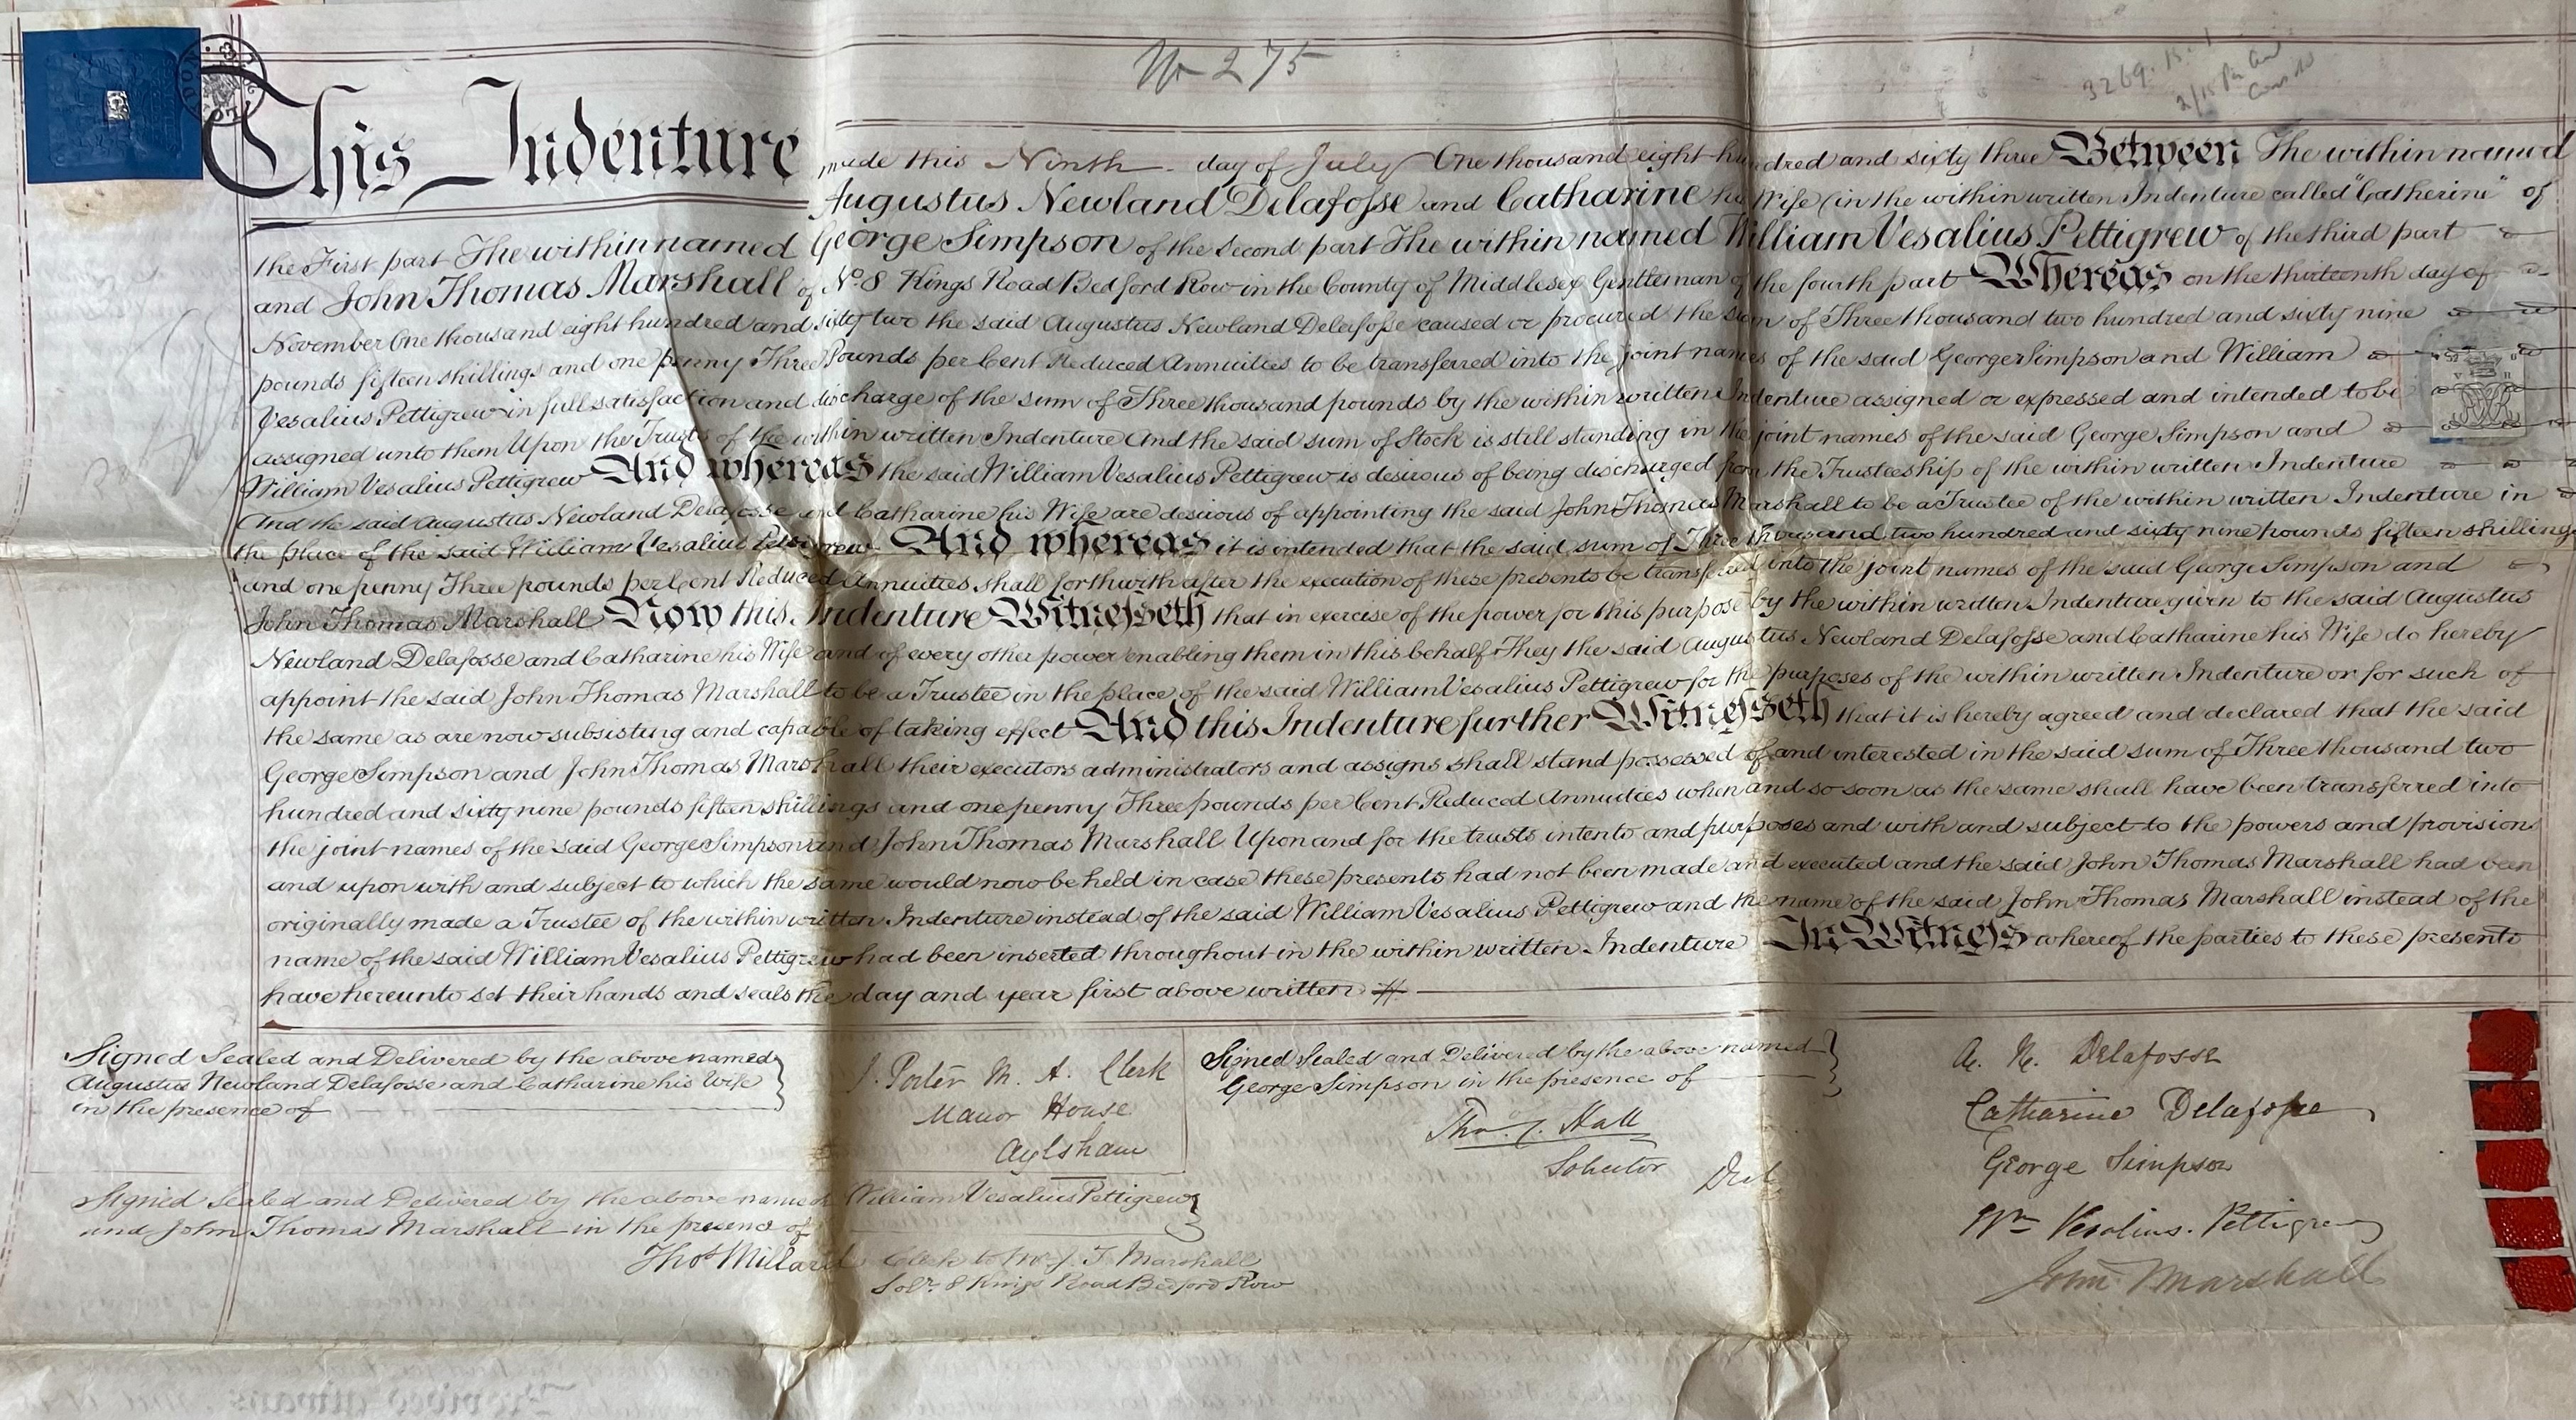 No 275
3269.15.1
This Indenture made this Ninth day of July One thousand eight hundred and sixty three Between The within named
Augustus Newland Delafosse and Catharine his Wife (in the within written Indenture called "Catherine" of
the First part The within named George Simpson of the Second part The within named William Vesalius Pettigrew of the third part
and John Thomas Marshall of No. 8 Kings Road Bedford Row in the County of Middlesex Gentleman of the fourth part Whereas on the thirteenth day of
November One thousand eight hundred and sixty two the said Augustus Newland Delafosse caused or procured the sum of Three thousand two hundred and sixty nine
pounds fifteen shillings and one penny Three Pounds per Cent Reduced Annuities to be transferred into the joint names of the said George Simpson and William
Vesalius Pettigrew in full satisfaction and discharge of the sum of Three thousand pounds by the within written Indenture assigned or expressed and intended to be
assigned unto them Upon the Trusts of the within written Indenture And the said sum of Stock is still standing in the joint names of the said George Simpson and
William Vesalius Pettigrew And whereas the said William Vesalius Pettigrew is desirous of being discharged from the Trusteeship of the within written Indenture
And the said Augustus Newland Delafosse and Catharine his Wife are desirous of appointing the said John Thomas Marshall to be a Trustee of the within written Indenture in
the place of the said William Vesalius Pettigrew And whereas it is intended that the said sum of Three thousand two hundred and sixty nine pounds fifteen shillings
and one penny Three pounds per Cent Reduced Annuities shall forthwith after the execution of these presents be transferred into the joint names of the said George Simpson and
John Thomas Marshall Now this Indenture Witnesseth that in exercise of the power for this purpose by the within written Indenture given to the said Augustus
Newland Delafosse and Catharine his Wife and of every other power enabling them in this behalf They the said Augustus Newland Delafosse and Catharine his Wife do hereby
appoint the said John Thomas Marshall to be a Trustee in the place of the said William Vesalius Pettigrew for the purposes of the within written Indenture or for such of
the same as are now subsisting and capable of taking effect And this Indenture further Witnesseth that it is hereby agreed and declared that the said
George Simpson and John Thomas Marshall their executors administrators and assigns shall stand possessed of and interested in the said sum of Three thousand two
hundred and sixty nine pounds fifteen shillings and one penny Three pounds per Cent Reduced Annuities when and so soon as the same shall have been transferred into
the joint names of the said George Simpson and John Thomas Marshall Upon and for the trusts intents and purposes and with and subject to the powers and provisions
and upon with and subject to which the same would now be held in case these presents had not been made and executed and the said John Thomas Marshall had been
originally made a Trustee of the within written Indenture instead of the said William Vesalius Pettigrew and the name of the said John Thomas Marshall instead of the
name of the said William Vesalius Pettigrew had been inserted throughout in the within written Indenture In Witness whereof the parties to these presents
have hereunto set their hands and seals the day and year first above written
Signed Sealed and Delivered by the above named
Augustus Newland Delafosse and Catharine his Wife
in the presence of
J. Porter M. A. Clerk
Manor House
Aylsham
Signed Sealed and Delivered by the above named
George Simpson in the presence of
Hall
Solicitor
Signed Sealed and Delivered by the above named William Vesalius Pettigrew
and John Thomas Marshall in the presence of
Thos Millard Clerk to Mr J. T. Marshall
Solr. 8 Kings Road Bedford Row
A. N. Delafosse
Catharine Delafosse
George Simpson
Wm Vesalius. Pettigrew
John T Marshall